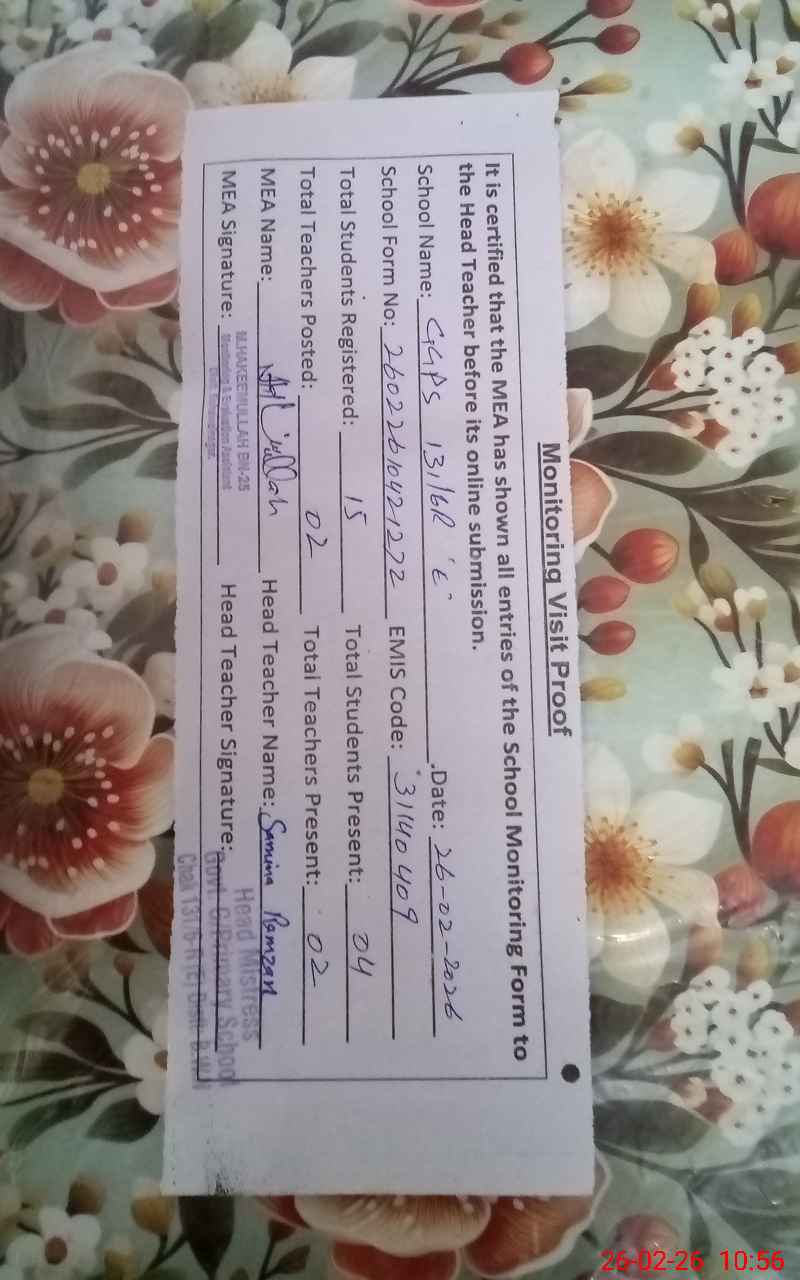 Monitoring Visit Proof
It is certified that the MEA has shown all entries of the School Monitoring Form to
the Head Teacher before its online submission.
School Name: GGPS 131/6R "E" Date: 26-02-2026
School Form No: 26022610421272 EMIS Code: 31140409
Total Students Registered: 15 Total Students Present: 04
Total Teachers Posted: 02 Total Teachers Present: 02
MEA Name: Head Teacher Name: Samina Ramzan
MEA Signature: Head Teacher Signature:
M.HAKEEMULLAH BN-25
Monitoring & Evaluation Assistant
Distt. Bahawalnagar.
Head Mistress
Govt. G/Primary School
Chak 131/6-R (E) Distt. B.W.N
26-02-26 10:56